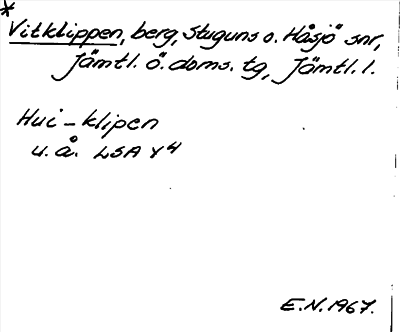 *
Vitklippen, berg, Stuguns o. Håsjö snr,
Jämtl. ö. doms. tg, Jämtl. l.
Hui-klipen
u.å. LSA Y4
E.N. 1967.